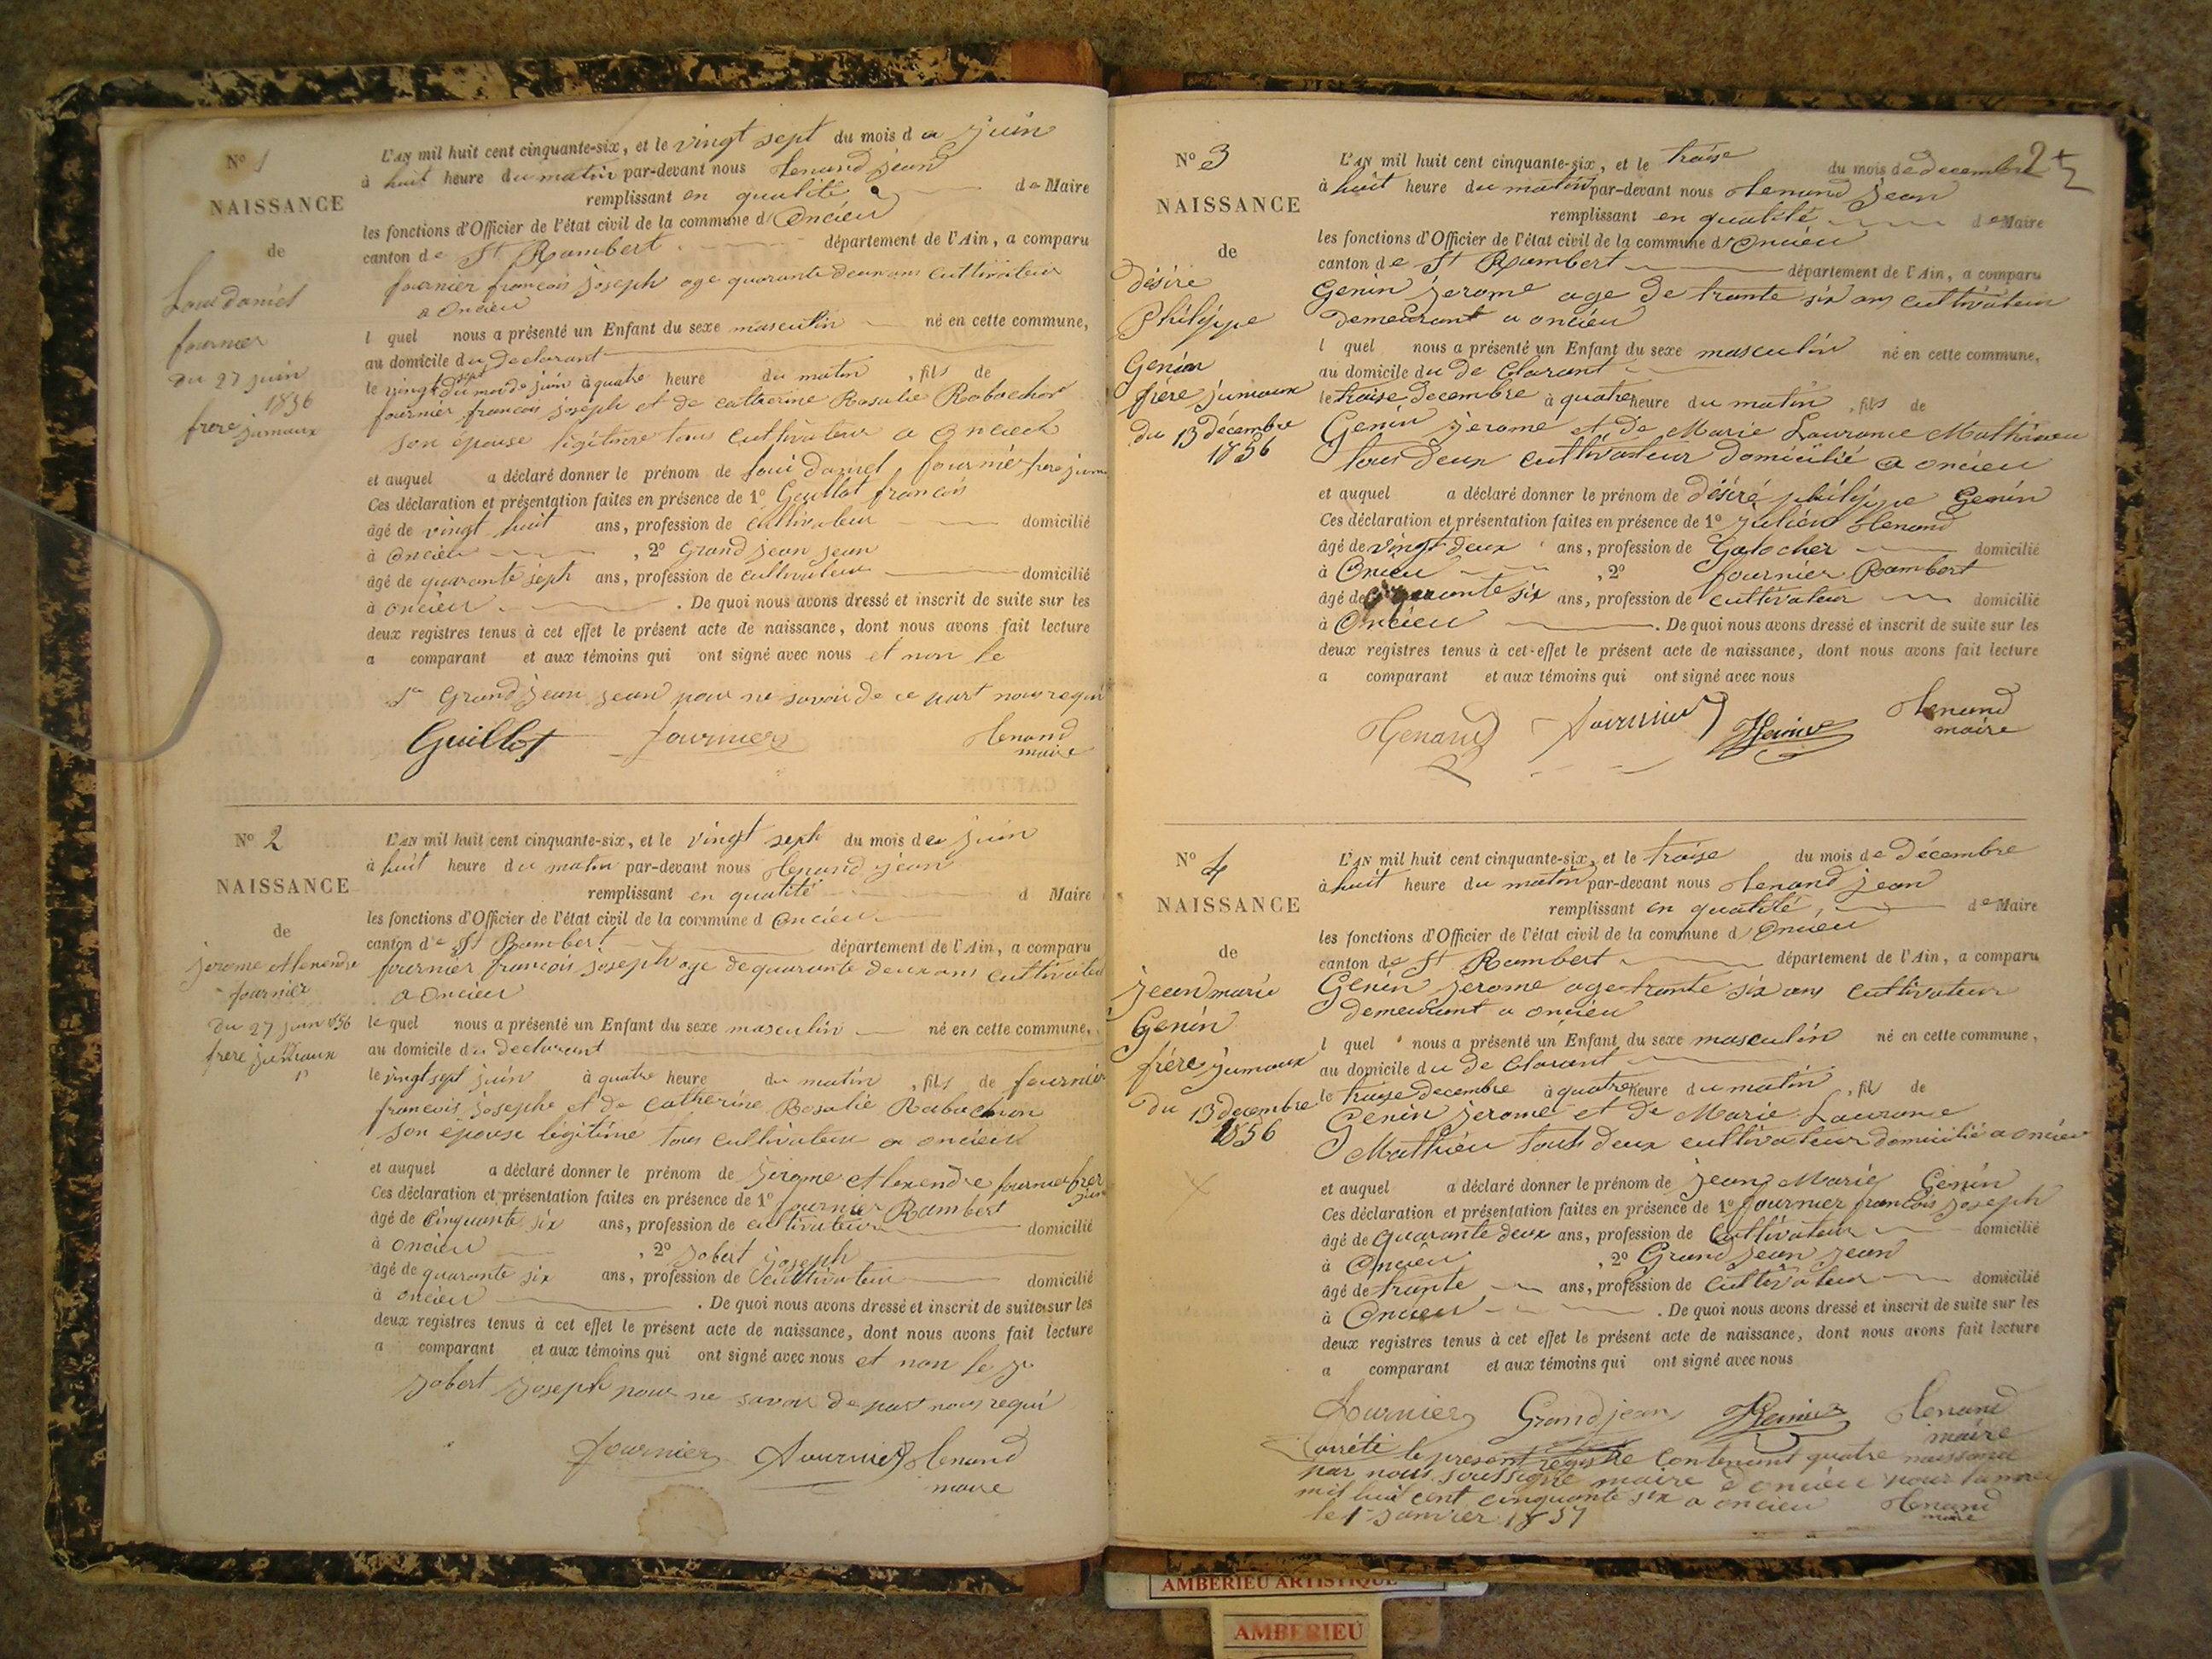 N° 1
NAISSANCE
de
Loui daniel
fournier
du 27 juin
1856
frere jumaux
L'AN mil huit cent cinquante-six, et le vingt sept du mois de juin
à huit heure du matin par-devant nous Henand jean
remplissant en qualité de Maire
les fonctions d'Officier de l'état civil de la commune d Oncieu
canton de St Rambert département de l'Ain, a comparu
fournier francois joseph age quarante deux ans cultivateur
a Oncieu
l quel nous a présenté un Enfant du sexe masculin né en cette commune,
au domicile du declarant
le vingt sept du mois de juin à quatre heure du matin, fils de
fournier francois joseph et de catherine Rosalie Rabachon
son épouse légitime tous cultivateur a Oncieu
et auquel a déclaré donner le prénom de loui daniel fournier frere jum
Ces déclaration et présentation faites en présence de 1° Guillot francois
âgé de vingt huit ans, profession de cultivateur domicilié
à Oncieu, 2° Grand jean jean
âgé de quarante sept ans, profession de cultivateur domicilié
à oncieu. De quoi nous avons dressé et inscrit de suite sur les
deux registres tenus à cet effet le présent acte de naissance, dont nous avons fait lecture
a comparant et aux témoins qui ont signé avec nous et non le
Sr Grand jean jean pour ne savoir de ce part nous requi
Guillot fournier Henand
maire
N° 2
NAISSANCE
de
jerome Alexendre
fournier
du 27 juin 1856
frere jumaux
L'AN mil huit cent cinquante-six, et le vingt sept du mois de juin
à huit heure du matin par-devant nous Henand jean
remplissant en qualité d Maire
les fonctions d'Officier de l'état civil de la commune d Oncieu
canton de St Rambert département de l'Ain, a comparu
fournier francois joseph age de quarante deux ans cultivateu
a Oncieu
le quel nous a présenté un Enfant du sexe masculin né en cette commune,
au domicile du declarant
le vingt sept juin à quatre heure du matin, fils de fournier
francois josephe et de catherine Rosalie Rabachon
son épouse légitime tous cultivateur a oncieu
et auquel a déclaré donner le prénom de jerome Alexendre fournier frer
jum
Ces déclaration et présentation faites en présence de 1° fournier Rambert
âgé de Cinquante six ans, profession de cultivateur domicilié
à oncieu, 2° Jobert joseph
âgé de quarante six ans, profession de cultivateur domicilié
à oncieu. De quoi nous avons dressé et inscrit de suite sur les
deux registres tenus à cet effet le présent acte de naissance, dont nous avons fait lecture
a comparant et aux témoins qui ont signé avec nous et non le Sr
Jobert joseph pour ne savoir de part nous requi
fournier fournier Henand
maire
2
N° 3
NAISSANCE
de
désire
Philippe
Genin
frére jumaux
du 13 décembre
1856
L'AN mil huit cent cinquante-six, et le traise du mois de decembre
à huit heure du matin par-devant nous Henand jean
remplissant en qualité de Maire
les fonctions d'Officier de l'état civil de la commune d'Oncieu
canton de St Rambert département de l'Ain, a comparu
Genin jerome age de trante six ans cultivateur
demeurant a oncieu
l quel nous a présenté un Enfant du sexe masculin né en cette commune,
au domicile du de clarant
le traise decembre à quatre heure du matin, fils de
Genin jerome et de Marie Laurance Mathieu
tous deux cultivateur domicilié a oncieu
et auquel a déclaré donner le prénom de désiré philippe Genin
Ces déclaration et présentation faites en présence de 1° julien Henand
âgé de vingt deux ans, profession de Galocher domicilié
à Oncieu, 2° fournier Rambert
âgé de quarante six ans, profession de cultivateur domicilié
à Oncieu. De quoi nous avons dressé et inscrit de suite sur les
deux registres tenus à cet effet le présent acte de naissance, dont nous avons fait lecture
a comparant et aux témoins qui ont signé avec nous
Henand fournier Genin Henand
maire
N° 4
NAISSANCE
de
jean marie
Genin
frére jumaux
du 13 decembre
1856
L'AN mil huit cent cinquante-six, et le traise du mois de décembre
à huit heure du matin par-devant nous Henand jean
remplissant en qualité de Maire
les fonctions d'Officier de l'état civil de la commune d Oncieu
canton de St Rambert département de l'Ain, a comparu
Genin jerome age trante six ans cultivateur
demeurant a oncieu
l quel nous a présenté un Enfant du sexe masculin né en cette commune,
au domicile du de clarant
le traise decembre à quatre heure du matin, fils de
Genin jerome et de Marie Laurance
Mathieu touts deux cultivateur domicilié a oncieu
et auquel a déclaré donner le prénom de jean Marie Genin
Ces déclaration et présentation faites en présence de 1° fournier francois joseph
âgé de quarante deux ans, profession de Cultivateur domicilié
à Oncieu, 2° Grand jean jean
âgé de trante ans, profession de cultivateur domicilié
à Oncieu. De quoi nous avons dressé et inscrit de suite sur les
deux registres tenus à cet effet le présent acte de naissance, dont nous avons fait lecture
a comparant et aux témoins qui ont signé avec nous
fournier Grandjean Genin Henand
maire
arrété le present registre contenant quatre naissance
par nous soussigné maire d'oncieu pour l'anné
mil huit cent cinquante six a oncieu Henand
le 1 janvier 1857 maire
AMBERIEU ARTISTIQUE
AMBERIEU